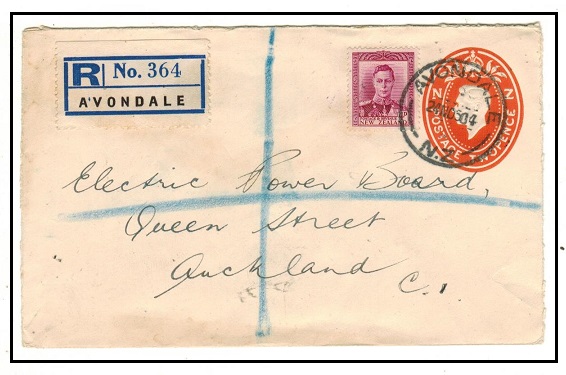 R No. 364
A'VONDALE
NEW ZEALAND
AVONDALE
N.Z
N Z POSTAGE TWOPENCE
Electric Power Board,
Queen Street
Auckland C.1.